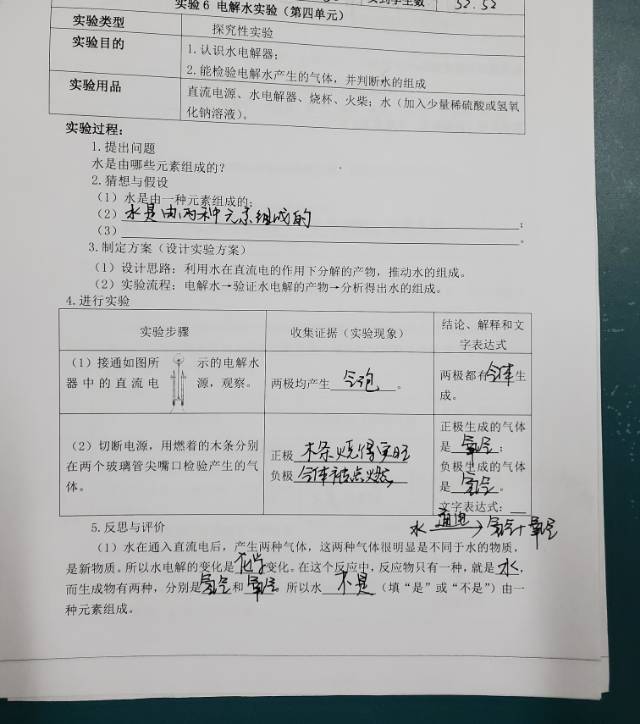 52.52
实验6 电解水实验（第四单元）
实验类型 探究性实验
实验目的 1.认识水电解器；
2.能检验电解水产生的气体，并判断水的组成
实验用品 直流电源、水电解器、烧杯、火柴；水（加入少量稀硫酸或氢氧
化钠溶液）。
实验过程：
1.提出问题
水是由哪些元素组成的？
2.猜想与假设
（1）水是由一种元素组成的；
（2）水是由两种元素组成的；
（3）。
3.制定方案（设计实验方案）
（1）设计思路：利用水在直流电的作用下分解的产物，推动水的组成。
（2）实验流程：电解水→验证水电解的产物→分析得出水的组成。
4.进行实验
实验步骤 收集证据（实验现象） 结论、解释和文
字表达式
（1）接通如图所 示的电解水
器中的直流电 源，观察。 两极均产生气泡。 两极都有气体生
成。
（2）切断电源，用燃着的木条分别
在两个玻璃管尖嘴口检验产生的气
体。
正极木条烧得更旺
负极气体被点燃
正极生成的气体
是氧气；
负极生成的气体
是氢气。
文字表达式：
水 通电→ 氢气+氧气
5.反思与评价
（1）水在通入直流电后，产生两种气体，这两种气体很明显是不同于水的物质，
是新物质。所以水电解的变化是化学变化。在这个反应中，反应物只有一种，就是水，
而生成物有两种，分别是氢气和氧气。所以水不是（填“是”或“不是”）由一
种元素组成。